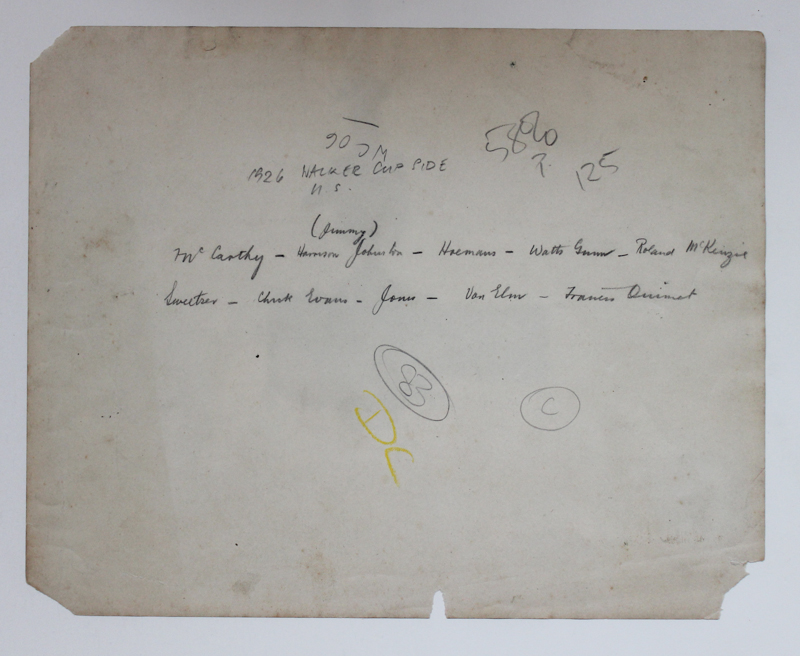 90 J M
580
?.
125
1926 WALKER CUP SIDE
U.S.
(Jimmy)
Mc Carthy – Harrison Johnston – Hoemans – Watts Gunn – Roland McKenzie
Sweetser – Chick Evans – Jones – Van Elm – Francis Ouimet
83
C
DC